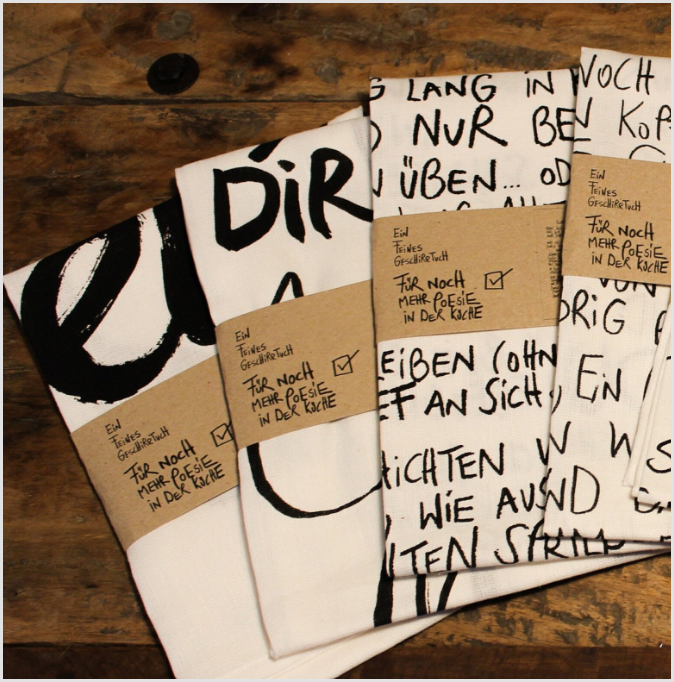 eu
EiN
FEiNES
GESCHiRRTUCH
FÜR NOCH
MEHR POESiE
iN DER KÜCHE
DiR
EiN
FEiNES
GESCHiRRTUCH
FÜR NOCH
MEHR POESiE
iN DER KÜCHE
G LANG iN
NUR BE
N ÜBEN... OD
EiN
FEiNES
GESCHiRRTUCH
FÜR NOCH
MEHR POESiE
iN DER KÜCHE
EiBEN (OHN
EF AN SiCH
HiCHTEN
WiE AUS
NTEN
NOCH
KOP
EiN
FEiNES
GESCHiRRTUCH
FÜR NOCH
MEHR POESiE
iN DER KÜCHE
VON
ORiG
EiN
W
ND
S